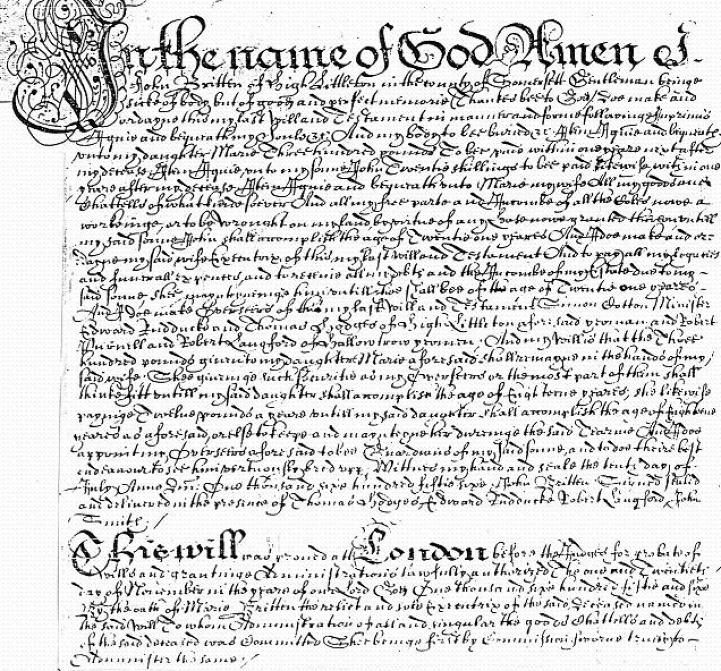 In the name of God Amen I
John Britten of High Littleton in the County of Somersett Gentleman beinge
sicke of body but of good and perfect memorie Thankes bee to God Doe make and
ordayne this my last will and Testament in manner and forme followinge Imprimis
I give and bequeath my Soule &c And my body to bee buried &c Item I give and bequeath
unto my daughter Marie Three hundred pounds To bee paid within one yeare next after
my decease Item I give unto my sonne John Twentie shillings to bee paid likewise within one
yeare after my decease Item I give and bequeath unto Marie my wife All my goods and
Chattells of what kinde soever And all my free parte and Incombe of all the Coles nowe a
workeinge or to be wrought on my land by vertue of any now granted untill
my said sonne John shall accomplish the age of Twentie one yeares And I doe make and or-
dayne my said wife Executrix of this my last will and Testament And to pay all my legacies
and funerall expences and to receive all my debts and the Incombe of my Estate due to my
said sonne shee mayntayninge him untill hee shall bee of the age of Twentie one yeares
And I doe make Overseers of this my last will and Testament Simon Cotton Minister
Edward Rudducke and Thomas Hodges of High Littleton aforesaid yeoman and Robert
Purnell and Robert Langford of Hallowtrow yeomen And my will is that the Three
hundred pounds given to my daughter Marie aforesaid shall remayne in the hands of my
said wife Shee giveinge such securitie as my Overseers or the most part of them shall
thinke fitt untill my said daughter shall accomplish the age of Eighteene yeares, she likewise
payinge Twelve pounds a yeare untill my said daughter shall accomplish the age of Eighteene
yeares as aforesaid, or else to keepe and mayntayne her dureinge the said Tearme And I doe
appoint my Overseers aforesaid to bee Guardians of my said sonne, and to doe theire best
endeavour to see him vertuously bred upp, Witnes my hand and seale the tenth day of
July Anno Dm: One thousand sixe hundred fiftie sixe, John Britten Signed sealed
and delivered in the presence of Thomas Hodges Edward Rudducke Robert Langford John
Smith /
This will was proved att London before the Judges for probate of
wills and grantinge Administrations lawfully authorized The one and Twentieth
day of November in the yeare of our Lord God One thousand sixe hundred fiftie and sixe
By the oath of Marie Britten the relict and sole Executrix of the said deceased named in
the said will To whom Administration of all and singular the goods Chattells and debts
of the said deceased was committed Shee beinge first by Commission sworne truely to
Administer the same /